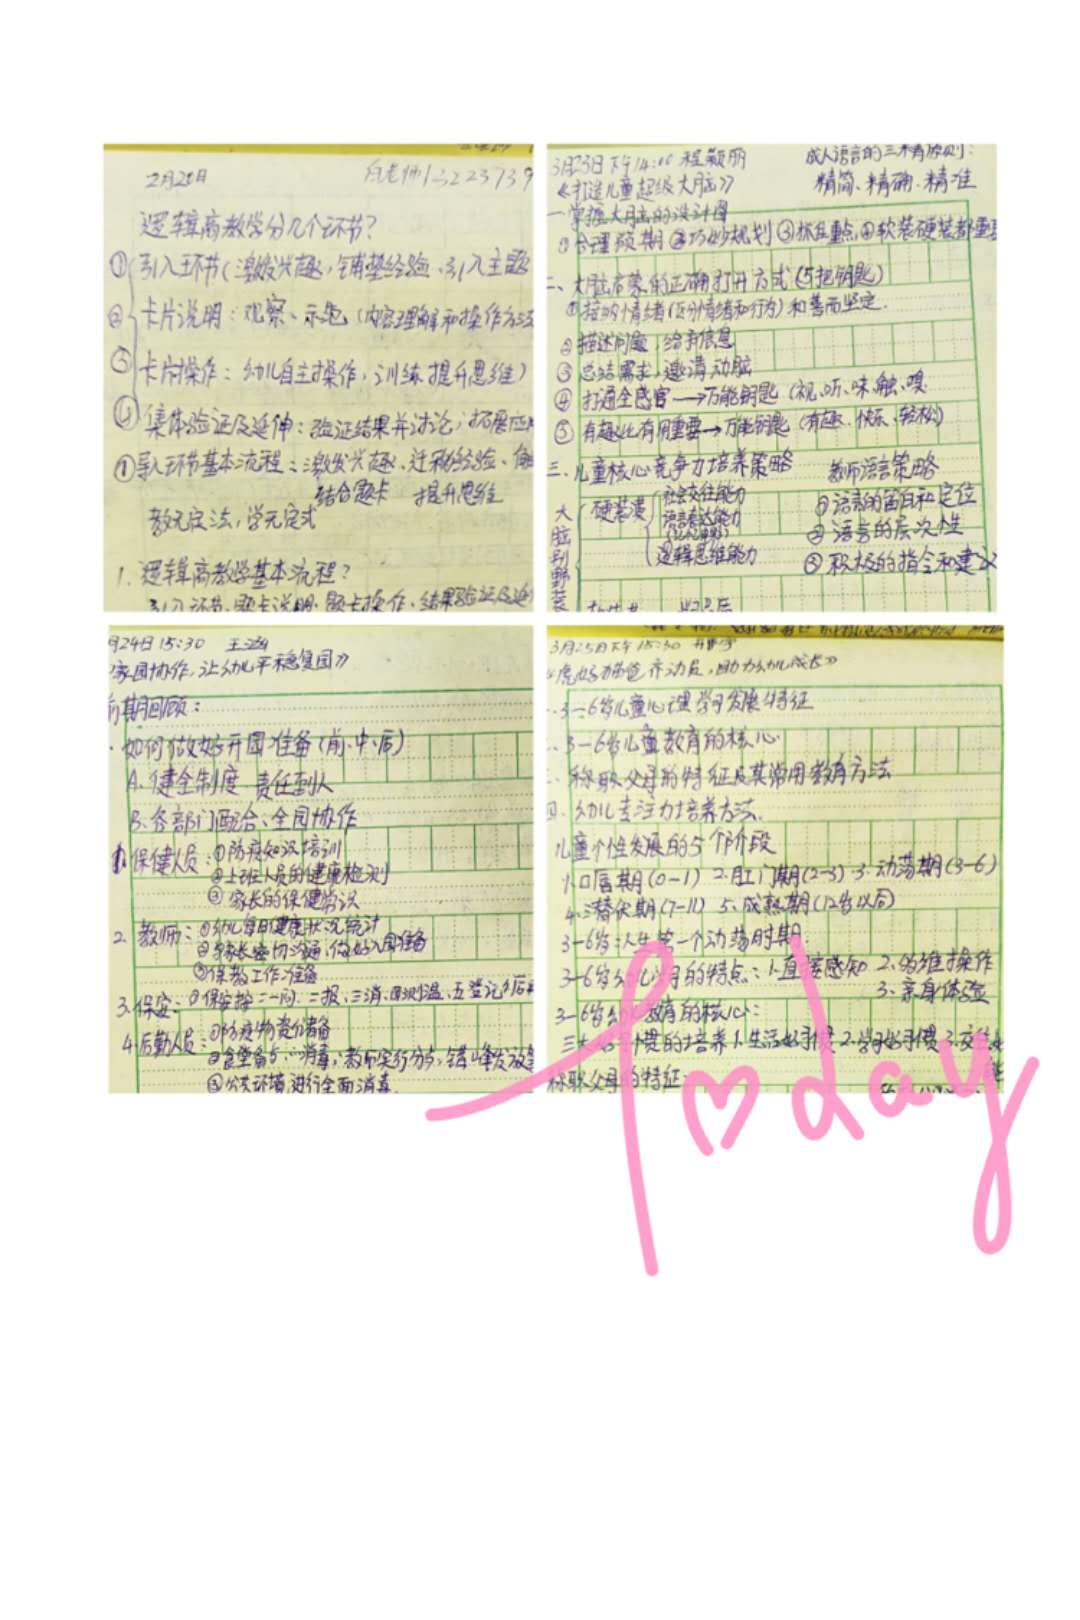 2月20日
逻辑高教学分几个环节？
①引入环节（激发兴趣、铺垫经验、引入主题
②卡片说明：观察、示范（内容理解和操作方法
③卡片操作：幼儿自主操作，训练提升思维）
④集体验证及延伸：验证结果并讨论，拓展应用
①导入环节基本流程：激发兴趣、迁移经验、
结合题卡 提升思维
教无定法，学无定式
1.逻辑高教学基本流程？
引入环节、题卡说明、题卡操作、结果验证及延
3月23日下午14:00 程颖丽
成人语言的三不精原则：
《打造儿童超级大脑》
精简、精确、精准
一掌握大脑的设计图
①合理预期②巧妙规划③抓住重点④软装硬装都重要
二、大脑启蒙的正确打开方式（5把钥匙）
①接纳情绪（区分情绪和行为）和善而坚定.
②描述问题，给予信息
③总结需求，邀请动脑
④打通全感官→万能钥匙（视、听、味、触、嗅
⑤有趣比有用重要→万能钥匙（有趣、快乐、轻松）
三、儿童核心竞争力培养策略
教师语言策略
大脑别野装
硬装潢
社会交往能力
语言表达能力
逻辑思维能力
①语言的留白和定位
②语言的层次性
③积极的指令和建议
月24日 15:30
家园协作，让幼儿平稳复园》
前期回顾：
如何做好开园准备（前、中、后）
A.健全制度 责任到人
B.各部门配合、全园协作
1.保健人员：①防疫知识培训
②上班人员的健康检测
③家长的保健常识
2.教师：①幼儿每日健康状况统计
②与家长密切沟通，做好入园准备
③保教工作准备
3.保安：①保安按：一问、二报、三消、四测温、五登记
4.后勤人员：①防疫物资储备
②食堂备餐、消毒，教师实行分餐，错峰发放
③公共环境进行全面消毒.
3月25日下午15:30
助力幼儿成长》
3—6岁儿童心理学习发展特征
3—6岁儿童教育的核心
称职父母的特征及其常用教育方法
四、幼儿专注力培养方法.
儿童个性发展的5个阶段
1.口唇期（0—1） 2.肛门期（2—3） 3.动荡期（3—6）
4.潜伏期（7—11） 5.成熟期（12岁以后）
3—6岁：人生第一个动荡时期
3—6岁幼儿学习的特点：1.直接感知 2.多维操作
3.亲身体验
3—6岁幼儿教育的核心：
三大好习惯的培养1.生活好习惯2.学习好习惯3.交往
称职父母的特征：
Today